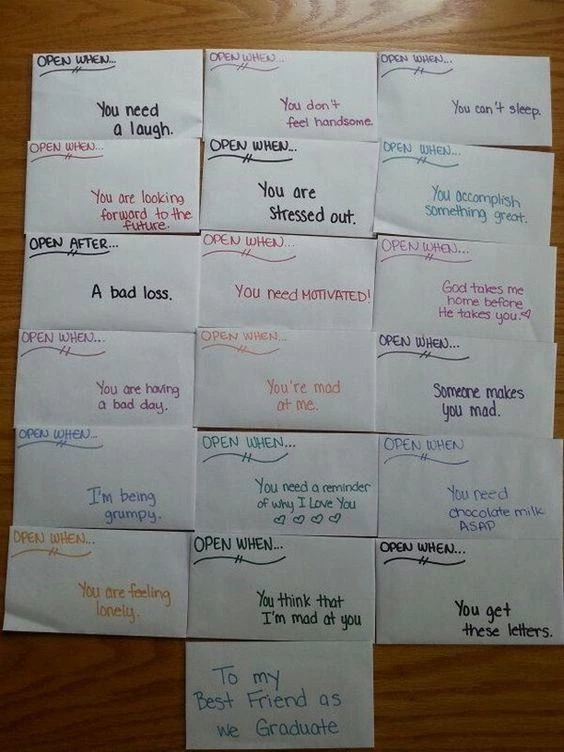 OPEN WHEN...
You need
a laugh.
OPEN WHEN...
You don't
feel handsome.
OPEN WHEN...
You can't sleep.
OPEN WHEN...
You are looking
forward to the
future.
OPEN WHEN...
You are
stressed out.
OPEN WHEN...
You accomplish
something great.
OPEN AFTER...
A bad loss.
OPEN WHEN...
You need MOTIVATED!
OPEN WHEN...
God takes me
home before
He takes you.
OPEN WHEN...
You are having
a bad day.
OPEN WHEN...
You're mad
at me.
OPEN WHEN...
Someone makes
you mad.
OPEN WHEN...
I'm being
grumpy.
OPEN WHEN...
You need a reminder
of why I Love You
OPEN WHEN
You need
chocolate milk
ASAP
OPEN WHEN...
You are feeling
lonely.
OPEN WHEN...
You think that
I'm mad at you
OPEN WHEN...
You get
these letters.
To my
Best Friend as
we Graduate